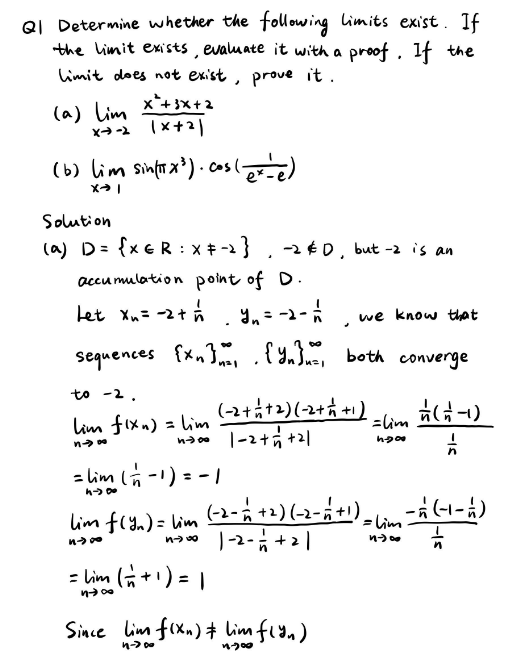 Q1 Determine whether the following limits exist. If
the limit exists, evaluate it with a proof. If the
limit does not exist, prove it.
(a) lim_{x→-2} (x²+3x+2)/|x+2|
(b) lim_{x→1} sin(πx³)·cos(1/(eˣ-e))
Solution
(a) D = {x ∈ R : x ≠ -2}, -2 ∉ D, but -2 is an
accumulation point of D.
Let xₙ = -2+1/n, yₙ = -2-1/n, we know that
sequences {xₙ}_{n=1}^∞, {yₙ}_{n=1}^∞ both converge
to -2.
lim_{n→∞} f(xₙ) = lim_{n→∞} ((-2+1/n+2)(-2+1/n+1))/|-2+1/n+2| = lim_{n→∞} (1/n(1/n-1))/(1/n)
= lim_{n→∞} (1/n-1) = -1
lim_{n→∞} f(yₙ) = lim_{n→∞} ((-2-1/n+2)(-2-1/n+1))/|-2-1/n+2| = lim_{n→∞} (-1/n(-1-1/n))/(1/n)
= lim_{n→∞} (1/n+1) = 1
Since lim_{n→∞} f(xₙ) ≠ lim_{n→∞} f(yₙ)